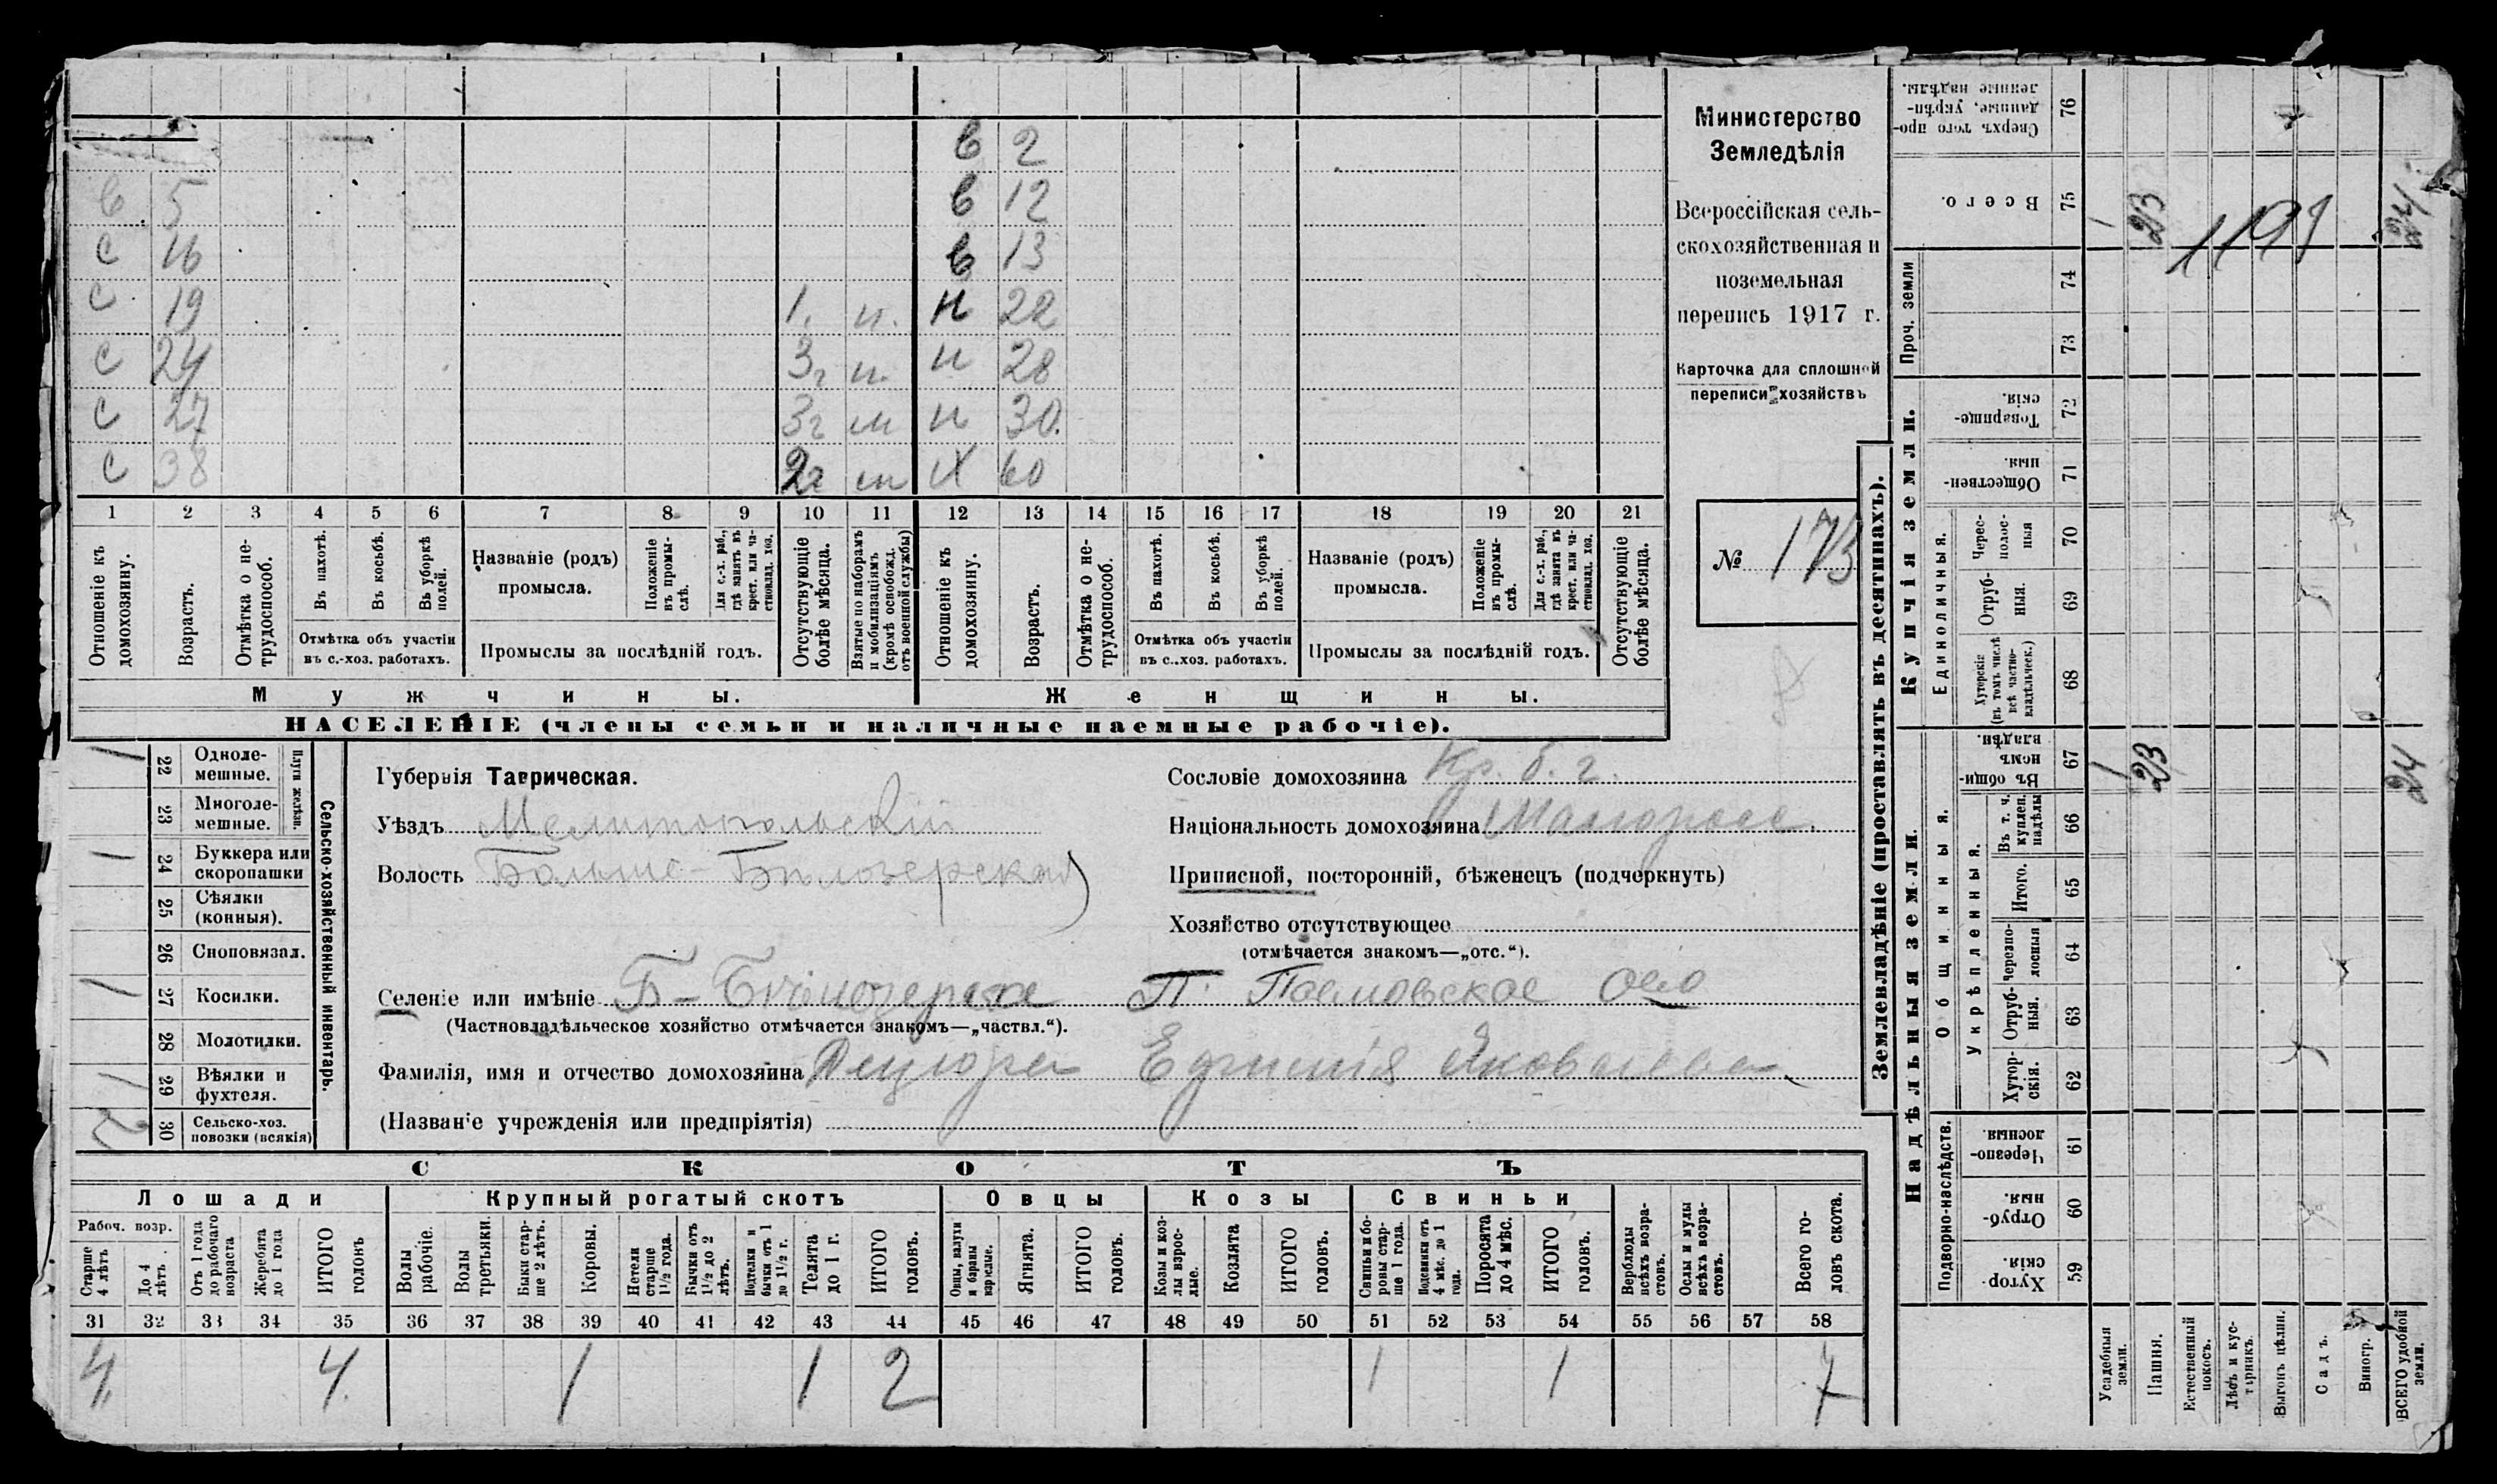 в 2
в 12
в 5
с 16 в 13
с 19 1. н 22
с 24 3г н 28
с 27 3г н 30.
с 38 2г Х 60
1 2 3 4 5 6 7 8 9 10 11 12 13 14 15 16 17 18 19 20 21
Отношеніе къ домохозяину.
Возрастъ.
Отмѣтка о не-трудоспособ.
Въ пахотѣ.
Въ косьбѣ.
Въ уборкѣ полей.
Отмѣтка объ участіи
въ с.-хоз. работахъ.
Названіе (родъ)
промысла.
Положеніе въ промы-слѣ.
Для с.-х. раб., гдѣ занятъ въ крест. или ча-стновлад. хоз.
Промыслы за послѣдній годъ.
Отсутствующіе болѣе мѣсяца.
Взятые по наборамъ и мобилизаціямъ (кромѣ освобожд. отъ военной службы)
Отношеніе къ домохозяину.
Возрастъ.
Отмѣтка о не-трудоспособ.
Въ пахотѣ.
Въ косьбѣ.
Въ уборкѣ полей.
Отмѣтка объ участіи
въ с.-хоз. работахъ.
Названіе (родъ)
промысла.
Положеніе въ промы-слѣ.
Для с.-х. раб., гдѣ занятъ въ крест. или ча-стновлад. хоз.
Промыслы за послѣдній годъ.
Отсутствующіе болѣе мѣсяца.
Мужчины.
Женщины.
НАСЕЛЕНІЕ (члены семьи и наличные наемные рабочіе).
Министерство
Земледѣлія
Всероссійская сель-
скохозяйственная и
поземельная
перепись 1917 г.
Карточка для сплошной
переписи хозяйствъ
№ 173
1 22 Одноле-мешные.
23 Многоле-мешные.
Плуги желѣзн.
1 24 Буккера или скоропашки
25 Сѣялки (конныя).
26 Сноповязал.
1 27 Косилки.
28 Молотилки.
1 29 Вѣялки и фухтеля.
2 30 Сельско-хоз. повозки (всякія)
Сельско-хозяйственный инвентарь.
Губернія Таврическая.
Уѣздъ Мелитопольскій
Волость Больше-Бѣлозерская
Сословіе домохозяина Кр. б. г.
Національность домохозяина Малоросс.
Приписной, посторонній, бѣженецъ (подчеркнуть)
Хозяйство отсутствующее
(отмѣчается знакомъ—„отс.“).
Селеніе или имѣніе Б-Бѣлозерское
(Частновладѣльческое хозяйство отмѣчается знакомъ—„частвл.“).
Фамилія, имя и отчество домохозяина Дацюра Ефимія Яковлева
(Названіе учрежденія или предпріятія)
СКОТЪ
Лошади Крупный рогатый скотъ Овцы Козы Свиньи
Рабоч. возр.
Старше 4 лѣтъ
До 4 лѣтъ.
Отъ 1 года до рабочаго возраста
Жеребята до 1 года
ИТОГО головъ
Волы рабочіе.
Волы третьяки.
Быки стар-ше 2 лѣтъ.
Коровы.
Нетели старше 1½ года.
Бычки отъ 1½ до 2 лѣтъ.
Подтелки и бычки отъ 1 до 1½ г.
Телята до 1 г.
ИТОГО головъ.
Овцы, валухи и бараны взрослые.
Ягнята.
ИТОГО головъ.
Козы и коз-лы взрос-лые.
Козлята
ИТОГО головъ.
Свиньи и бо-ровы стар-ше 1 года.
Подсвинки отъ 4 мѣс. до 1 года.
Поросята до 4 мѣс.
ИТОГО головъ.
Верблюды всѣхъ возра-стовъ.
Ослы и мулы всѣхъ возра-стовъ.
Всего го-ловъ скота.
31 32 33 34 35 36 37 38 39 40 41 42 43 44 45 46 47 48 49 50 51 52 53 54 55 56 57 58
4. 4. 1 1 2 1 1 7
Землевладѣніе (проставлять въ десятинахъ).
Купчія земли.
Надѣльныя земли.
Сверхъ того про-данные, укрѣп-ленные надѣлы. 76
Всего. 75
Проч. земли 74 73
Товарище-скія. 72
Обществен-ныя. 71
Единоличныя.
Черес-полос-ныя 70
Отруб-ныя. 69
Хуторскія (въ томъ числѣ всѣ частно-владѣльческ.) 68
Общинныя.
Въ общи-номъ владѣн. 67
Въ т. ч. куплен. надѣлы 66
Укрѣпленныя.
Итого. 65
Черезпо-лосныя 64
Отруб-ныя. 63
Хутор-скія. 62
Подворно-наслѣдств.
Черезпо-лосныя. 61
Отруб-ныя. 60
Хутор-скія. 59
Усадебныя земли.
Пашня.
Естественный покосъ.
Лѣсъ и кус-тарникъ.
Выгонъ цѣлин.
Садъ.
Виногр.
ВСЕГО удобной земли.
1 23 24
1 23 24